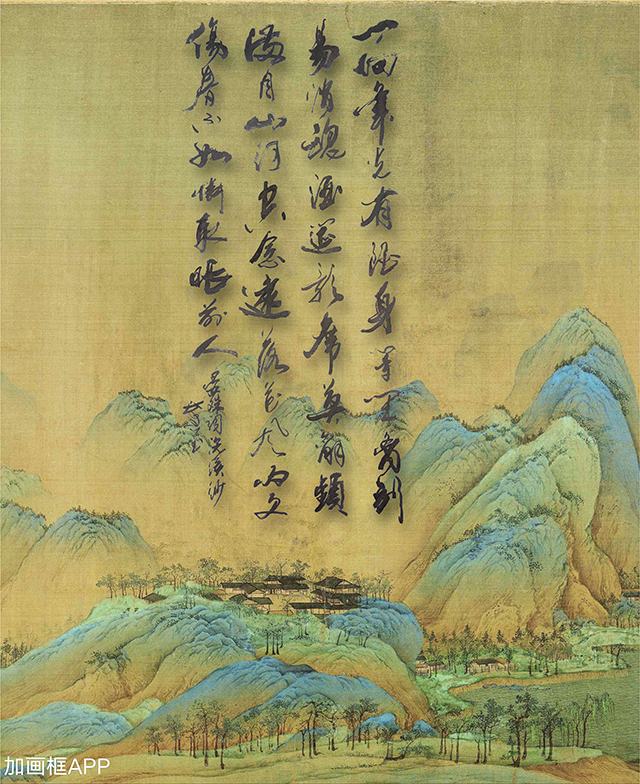 一向年光有限身等闲離别
易消魂酒筵歌席莫辭頻
滿目山河空念遠落花風雨更
傷春不如憐取眼前人
晏殊詞浣溪沙
加画框APP